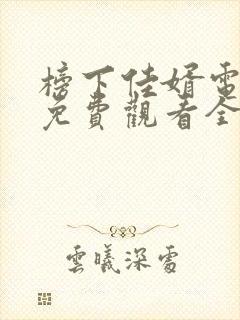 榜下佳婿電
免費觀看全
雲曦深處